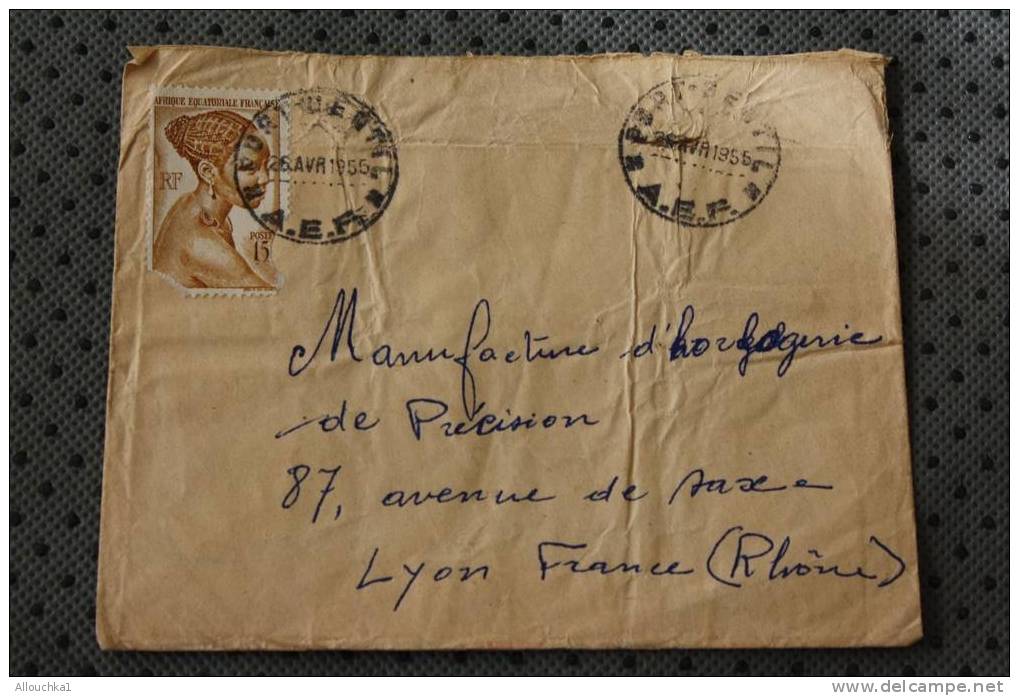 AFRIQUE EQUATORIALE FRANÇAISE
RF
POSTE
15
PORT-GENTIL
26 AVR 1955
A.E.F.
PORT-GENTIL
26 AVR 1955
A.E.F.
Manufacture d'horlogerie
de Précision
87, avenue de saxe
Lyon France (Rhône)
Allouchka1
www.delcampe.net